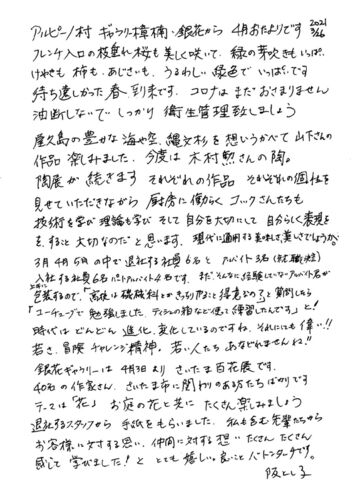 アルピーノ村 ギャラリー樟楠・銀花から 4月おたよりです 2021 3/26
フレンチ入口の枝垂れ桜も美しく咲いて、緑の芽吹きもいっぱい
けやきも 柿も、あじさいも、うるわしい 緑色で いっぱいです
待ち遠しかった春、到来です。コロナは まだおさまりません
油断しないで しっかり 衛生管理致しましょう
屋久島の豊かな海や空、縄文杉を 想いうかべて 山下さんの
作品 楽しみました。今度は 木村 さんの陶。
陶展が 続きます それぞれの作品 それぞれの個性を
見せていただきながら 厨房に働らく コックさんたちも
技術を学び 理論も学び そして 自分を大切にして 自分らしく表現を
する。すること 大切なのだ と思います。現代に通用する美味しさ、美しさでしょうか。
3月4月の中で 退社する社員6名と アルバイト3名(就職)
入社する社員6名 パートアルバイト4名です。まだ、そんなに経験していないアルバイト君が
上手に包装するので、「高校は 科とかきっちりやること得意なの?」と質問したら
「ユーチューブで 勉強しました。ティッシュの箱など使って練習したんです」と!
時代は どんどん 進化、変化しているのですね。それにしても 偉い!!
若さ、冒険 チャレンジ精神。若い人たち あなどれませんね。"
銀花ギャラリーは 4月3日より さいたま百花展です。
40名の作家さん。さいたま市に関わりのある方たちばかりです
テーマは「花」 お庭の花と共に たくさん楽しみましょう
退社するスタッフから 手紙をもらいました。私も含む先輩たちから
お客様に対する思い、仲間に対する想い たくさん たくさん
感じて 学びました!と とても嬉しい。良いこと バトンタッチです。
阪とし子